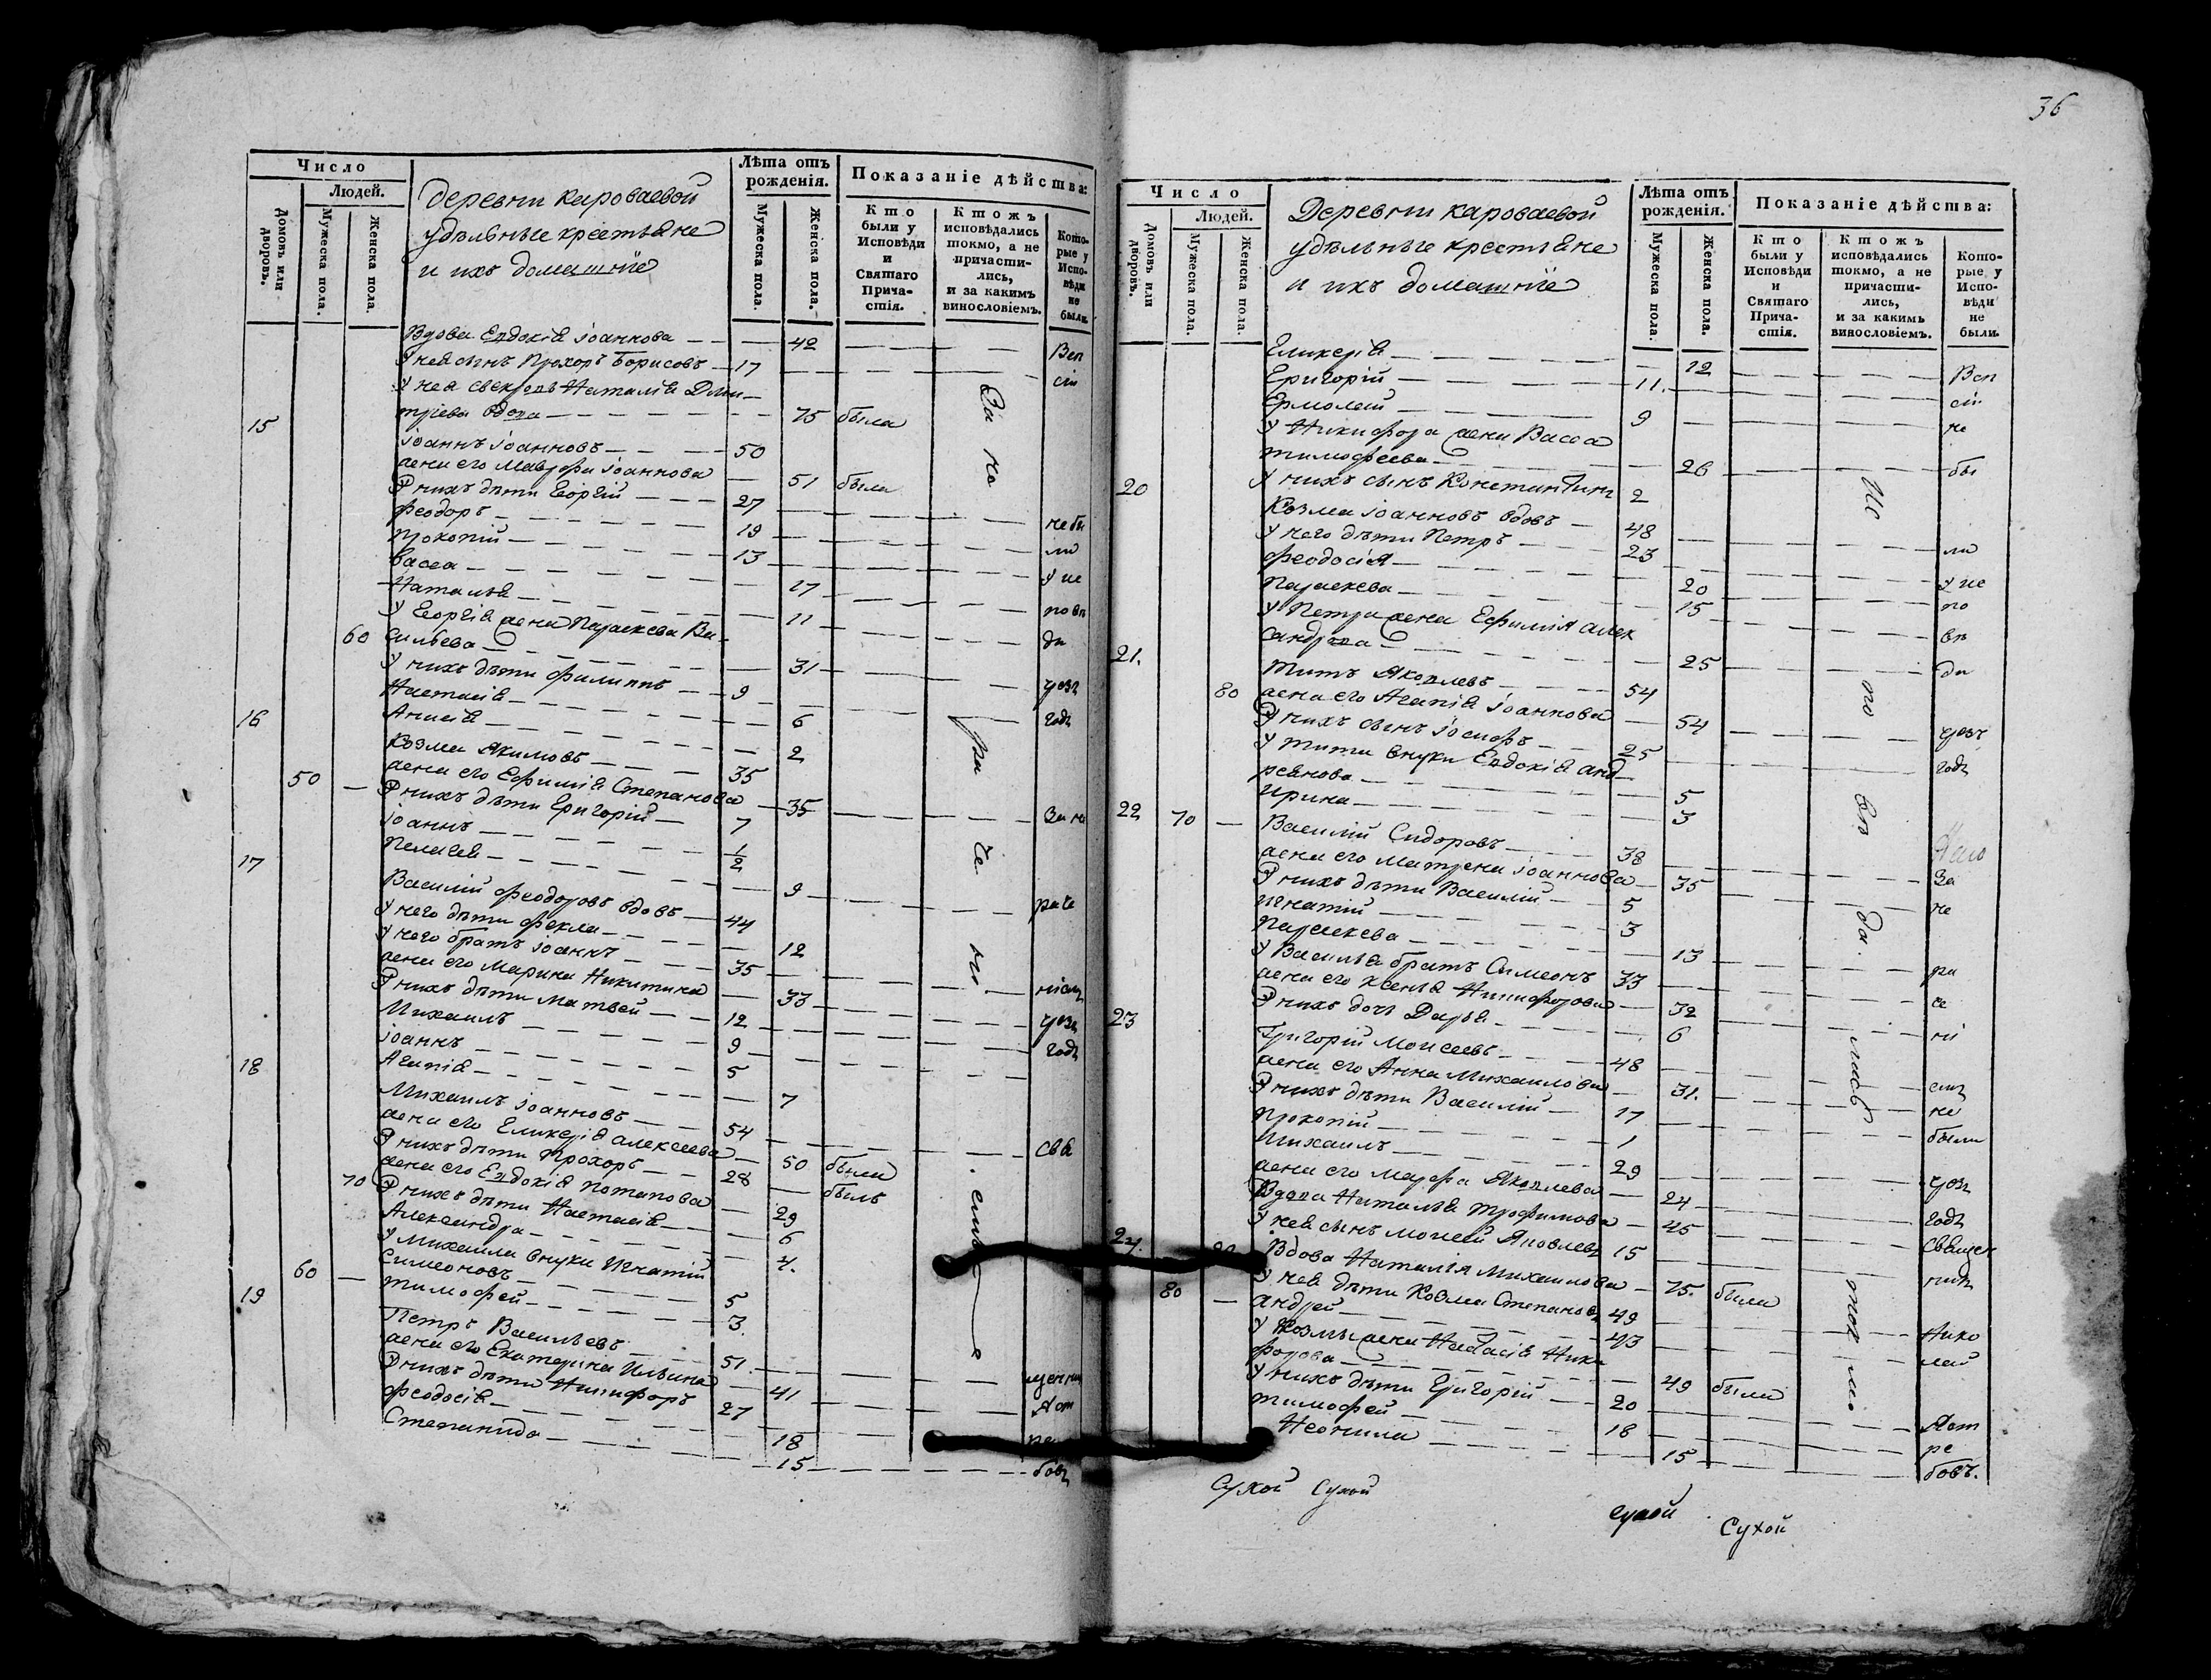 36
Число
Людей.
Домовъ или дворовъ.
Мужеска пола.
Женска пола.
Деревни Кароваевой
удѣльные крестьяне
и ихъ домашніе
Лѣта отъ рожденія.
Мужеска пола.
Женска пола.
Показаніе дѣйства:
Кто были у Исповѣди и Святаго Причастія.
Ктожъ исповѣдались токмо, а не причастились, и за какимъ винословіемъ.
Которые у Исповѣди не были.
Вдова Евдокія Іоаннова 42
У нея сынъ Прохоръ Борисовъ 17
У нея свекровь Наталія Дми-
тріева вдова 75 была
15 Іоаннъ Іоанновъ 50
жена его Мавра Іоаннова 51 была
У нихъ дѣти Георгій 27
Феодоръ 19
Прокопій 13
Васса 17
Наталья 11
У Георгія жена Параскева Ва-
60 сильева 31
У нихъ дѣти Филиппъ 9
Настасія 6
Анисія 2
16 Козма Якимовъ 35
50 жена его Ефимія Степанова 35
У нихъ дѣти Григорій 7
Іоаннъ 1/2
Пелагея 9
17 Василій Феодоровъ вдовъ 44
У него дѣти Фекла 12
У него братъ Іоаннъ 35
жена его Марина Никитина 33
У нихъ дѣти Матвей 12
Михаилъ 9
Іоаннъ 5
Агапія 7
18 Михаилъ Іоанновъ 54
жена его Гликерія Алексеева 50 была
У нихъ дѣти Прохоръ 28 былъ
70 жена его Евдокія Потапова 29
У нихъ дѣти Настасія 6
Александра 4.
У Михаила внуки Игнатій
60 Симеоновъ 5
Тимофей 3.
19 Петръ Васильевъ 51
жена его Екатерина Ильина 41
У нихъ дѣти Никифоръ 27
Феодосія 18
Степанида 15
Число
Людей.
Домовъ или дворовъ.
Мужеска пола.
Женска пола.
Деревни Кароваевой
удѣльные крестьяне
и ихъ домашніе
Лѣта отъ рожденія.
Мужеска пола.
Женска пола.
Показаніе дѣйства:
Кто были у Исповѣди и Святаго Причастія.
Ктожъ исповѣдались токмо, а не причастились, и за какимъ винословіемъ.
Которые у Исповѣди не были.
Гликерія 12
Григорій 11.
Ермолай 9
У Никифора жена Васса
Тимофеева 26
У нихъ сынъ Константинъ 2
20 Козма Іоанновъ вдовъ 48
У него дѣти Петръ 23
Феодосія 20
Параскева 15
У Петра жена Ефимія Алек
сандрова 25
21. Титъ Яковлевъ 54
80 жена его Агапія Іоаннова 54
У нихъ сынъ Іосифъ 25
У Тита внуки Евдокія Анд
реянова 5
Ирина 3
22 70 Василій Сидоровъ 38
жена его Матрена Іоаннова 35
У нихъ дѣти Василій 5
Игнатій 3
Параскева 13
У Василья братъ Симеонъ 33
жена его Ксенья Никифорова 32
У нихъ дочь Дарья 6
23 Григорій Моисеевъ 48
жена его Анна Михаилова 31.
У нихъ дѣти Василій 17
Прокопій 1
Михаилъ 29
жена его Марфа Яковлева 24
Вдова Наталья Трофимова 45
У нея сынъ Моисей Яковлевъ 15
24. Вдова Наталія Михаилова 75. была
80 У нея дѣти Козма Степановъ 49
Андрей 43
У Козмы жена Настасія Ники
форова 49 была
У нихъ дѣти Григорій 20
Тимофей 18
Неонила 15
Сухой Сухой
Сухой
Сухой